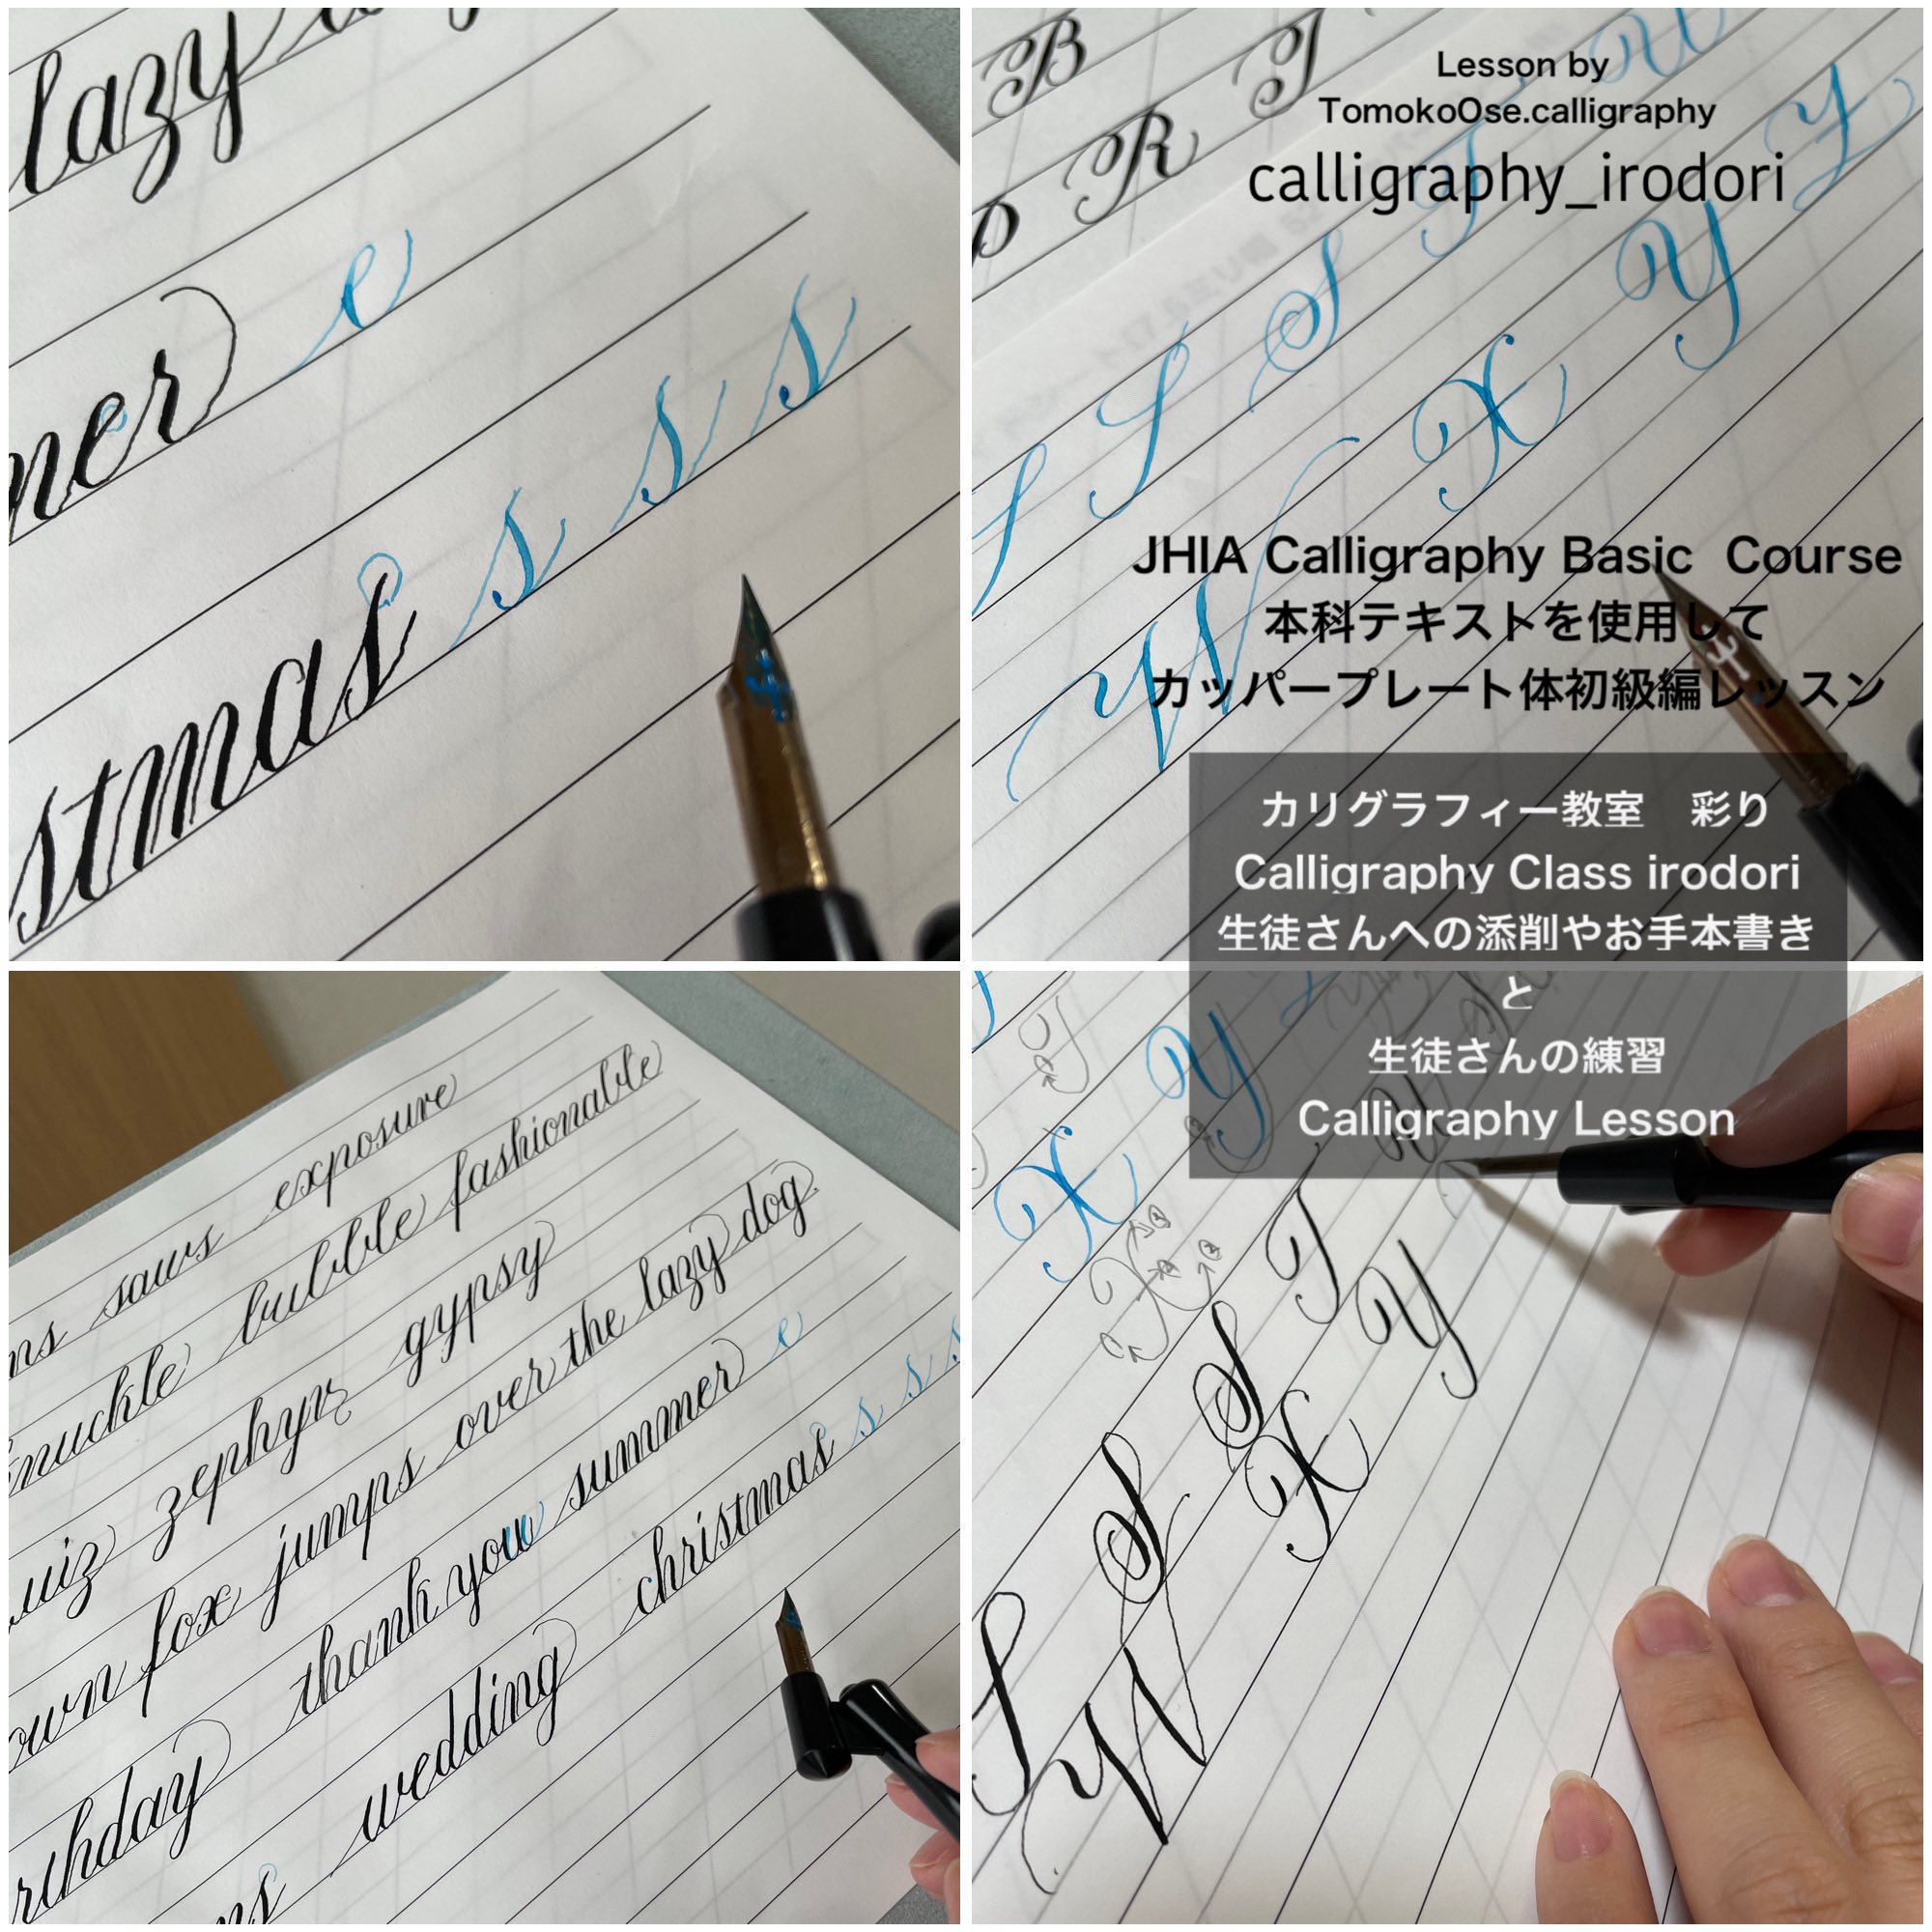 lazy
mer e
stmas s s s
B
R T
Lesson by
TomokoOse.calligraphy
calligraphy_irodori
S S T Y
W X Y
JHIA Calligraphy Basic Course
本科テキストを使用して
カッパープレート体初級編レッスン
カリグラフィー教室 彩り
Calligraphy Class irodori
生徒さんへの添削やお手本書き
と
生徒さんの練習
Calligraphy Lesson
ns saws exposure
knuckle bubble fashionable
uiz zephyr gypsy
own fox jumps over the lazy dog.
rthday thank you summer e
wedding christmas s s s
ns
X Y
S S S T
W X Y